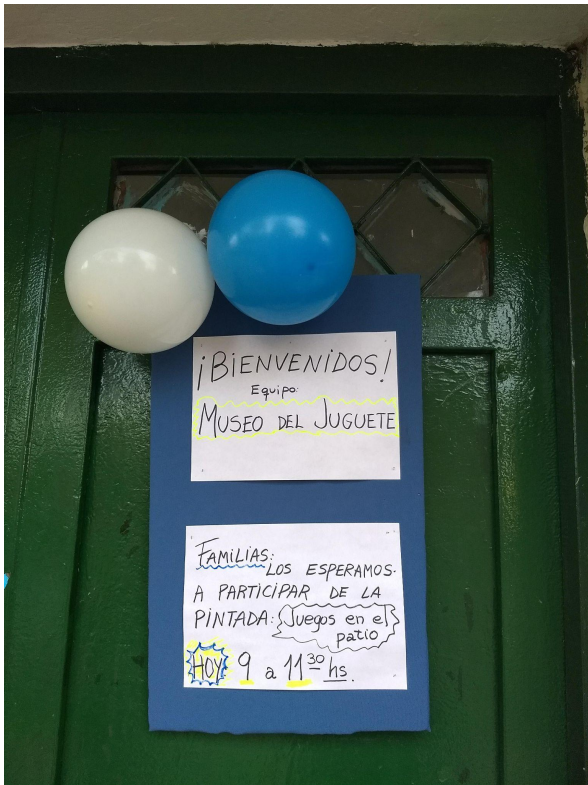 ¡BIENVENIDOS!
Equipo:
MUSEO DEL JUGUETE
FAMILIAS:
LOS ESPERAMOS
A PARTICIPAR DE LA
PINTADA: Juegos en el
patio
HOY 9 a 11 30 hs.